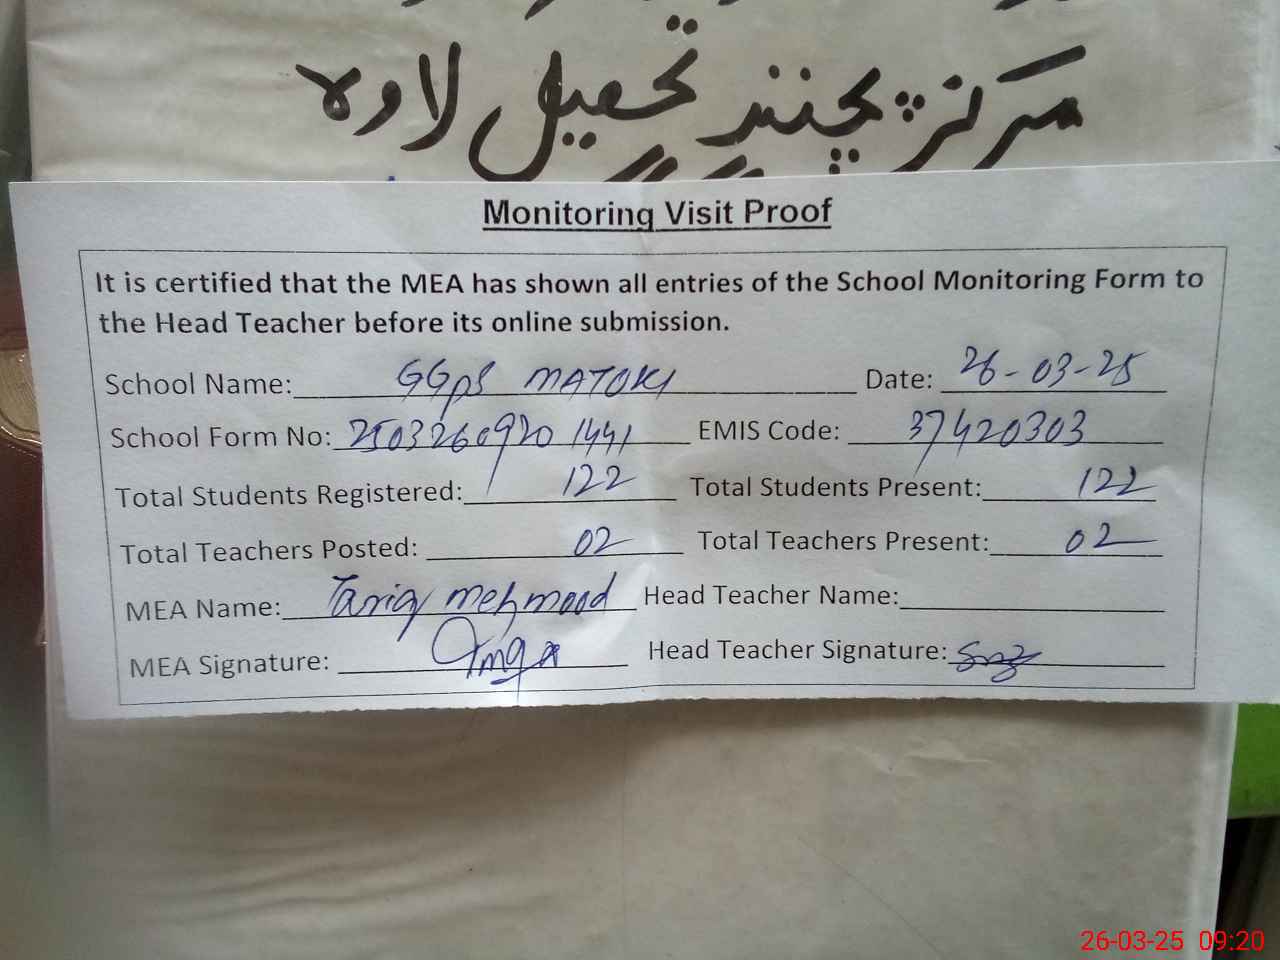 مرکز پچنند تحصیل لاوہ
Monitoring Visit Proof
It is certified that the MEA has shown all entries of the School Monitoring Form to
the Head Teacher before its online submission.
School Name: GGPS MATOKI Date: 26-03-25
School Form No: 25032609201441 EMIS Code: 37420303
Total Students Registered: 122 Total Students Present: 122
Total Teachers Posted: 02 Total Teachers Present: 02
MEA Name: Tariq Mehmood Head Teacher Name:
MEA Signature: Head Teacher Signature:
26-03-25 09:20